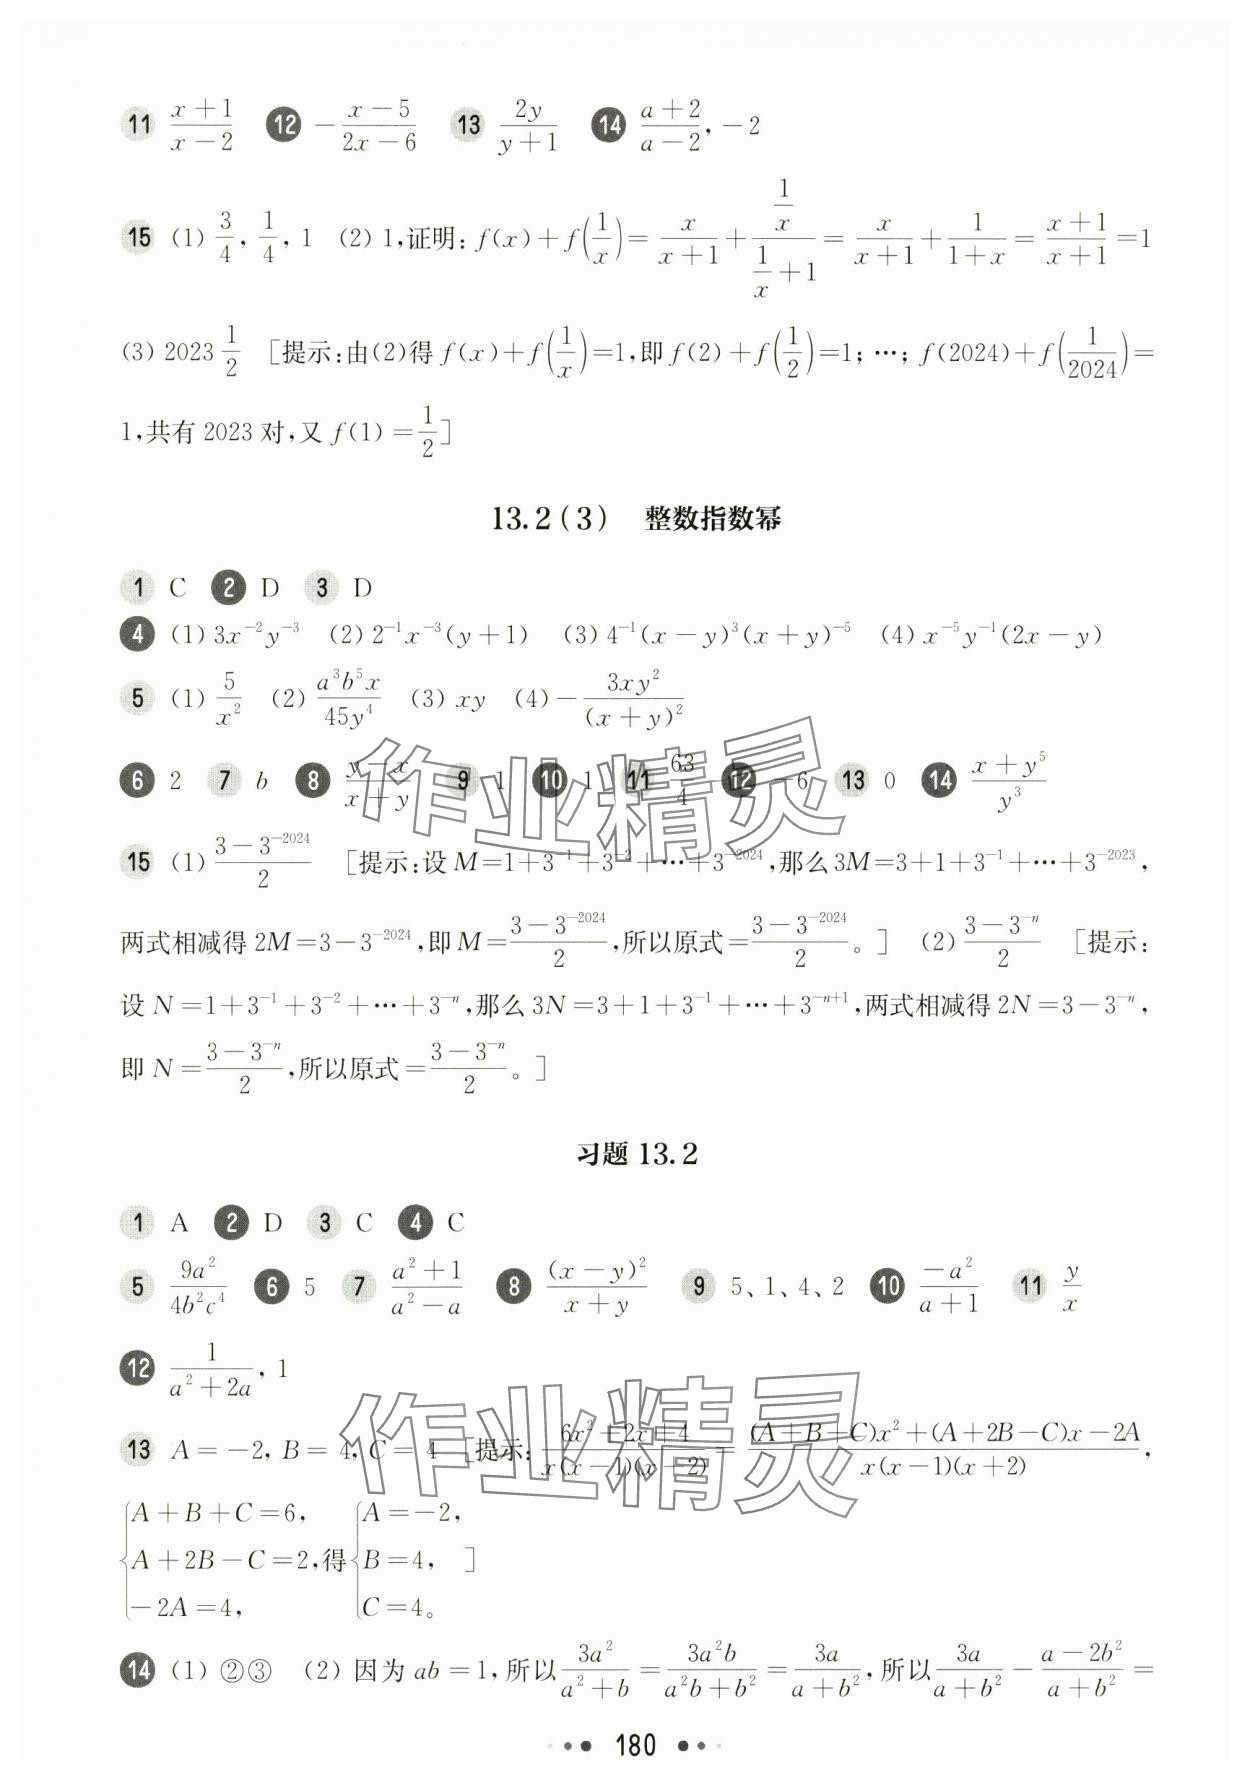 11 \frac{x+1}{x-2} 12 -\frac{x-5}{2x-6} 13 \frac{2y}{y+1} 14 \frac{a+2}{a-2}, -2
15 (1) \frac{3}{4}, \frac{1}{4}, 1 (2) 1,证明: f(x)+f(\frac{1}{x})=\frac{x}{x+1}+\frac{\frac{1}{x}}{\frac{1}{x}+1}=\frac{x}{x+1}+\frac{1}{1+x}=\frac{x+1}{x+1}=1
(3) 2023\frac{1}{2} [提示:由(2)得f(x)+f(\frac{1}{x})=1,即f(2)+f(\frac{1}{2})=1; …; f(2024)+f(\frac{1}{2024})=
1,共有2023对,又f(1)=\frac{1}{2}]
13.2(3) 整数指数幂
1 C 2 D 3 D
4 (1) 3x^{-2}y^{-3} (2) 2^{-1}x^{-3}(y+1) (3) 4^{-1}(x-y)^3(x+y)^{-5} (4) x^{-5}y^{-1}(2x-y)
5 (1) \frac{5}{x^2} (2) \frac{a^3b^5x}{45y^4} (3) xy (4) -\frac{3xy^2}{(x+y)^2}
6 2 7 b 8 \frac{y-x}{x+y} 9 1 10 1 11 \frac{63}{4} 12 -6 13 0 14 \frac{x+y^5}{y^3}
15 (1) \frac{3-3^{-2024}}{2} [提示:设M=1+3^{-1}+3^{-2}+…+3^{-2024},那么3M=3+1+3^{-1}+…+3^{-2023},
两式相减得2M=3-3^{-2024},即M=\frac{3-3^{-2024}}{2},所以原式=\frac{3-3^{-2024}}{2}。] (2) \frac{3-3^{-n}}{2} [提示:
设N=1+3^{-1}+3^{-2}+…+3^{-n},那么3N=3+1+3^{-1}+…+3^{-n+1},两式相减得2N=3-3^{-n},
即N=\frac{3-3^{-n}}{2},所以原式=\frac{3-3^{-n}}{2}。]
习题 13.2
1 A 2 D 3 C 4 C
5 \frac{9a^2}{4b^2c^4} 6 5 7 \frac{a^2+1}{a^2-a} 8 \frac{(x-y)^2}{x+y} 9 5、1、4、2 10 \frac{-a^2}{a+1} 11 \frac{y}{x}
12 \frac{1}{a^2+2a}, 1
13 A=-2, B=4, C=4 [提示: \frac{6x^2+2x+4}{x(x-1)(x+2)}=\frac{(A+B+C)x^2+(A+2B-C)x-2A}{x(x-1)(x+2)},
A+B+C=6, A=-2,
A+2B-C=2,得 B=4, ]
-2A=4, C=4。
14 (1) ②③ (2) 因为ab=1,所以\frac{3a^2}{a^2+b}=\frac{3a^2b}{a^2b+b^2}=\frac{3a}{a+b^2},所以\frac{3a}{a+b^2}-\frac{a-2b^2}{a+b^2}=
180
作业精灵
作业精灵